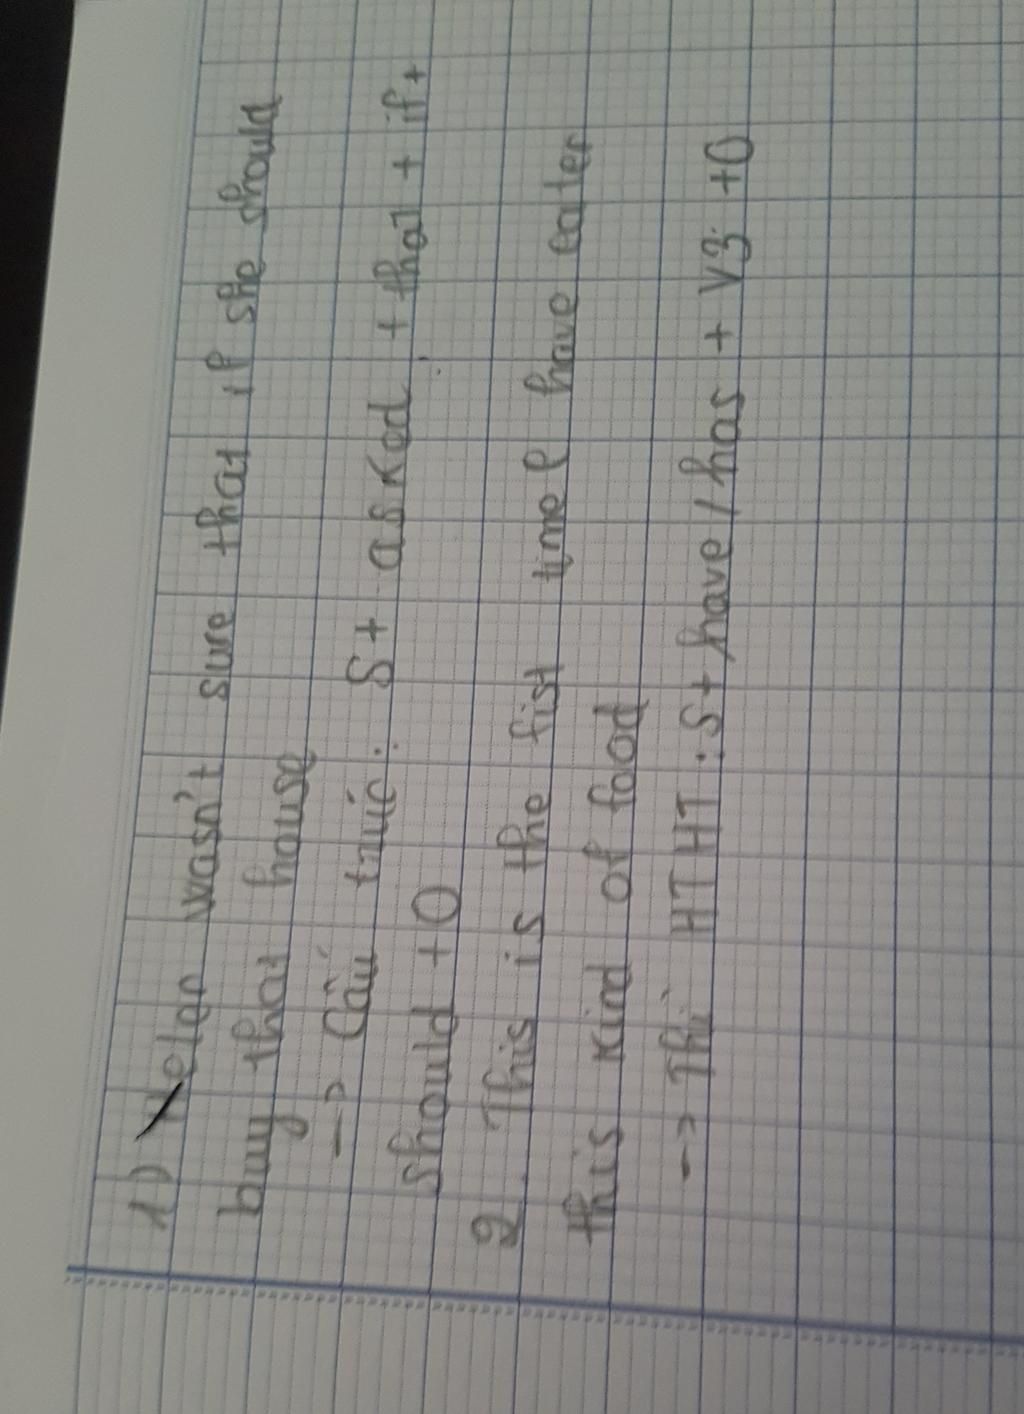 1) Peter wasn't sure that if she should
buy that house
-> Cấu trúc: S + asked + that + if +
should + O
2. This is the fist time I have eaten
this kind of food
-> Thì HTHT : S + have / has + V3 + O